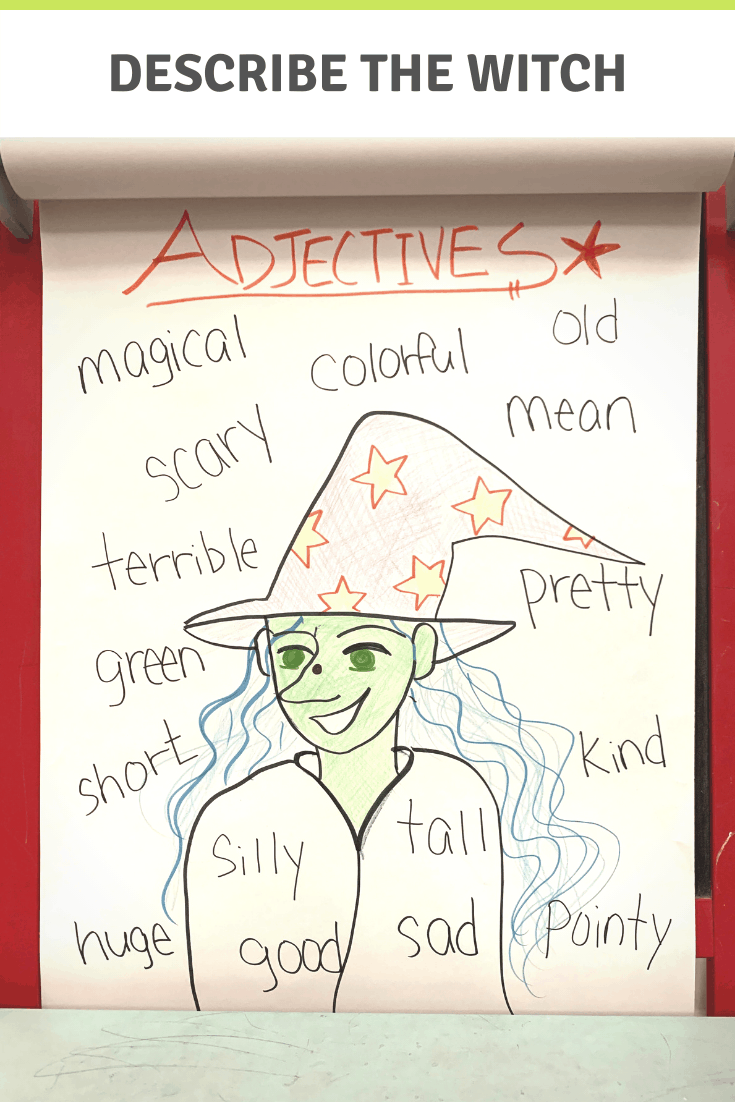 DESCRIBE THE WITCH
ADJECTIVES
magical
colorful
old
scary
mean
terrible
pretty
green
short
kind
silly
tall
huge
good
sad
pointy